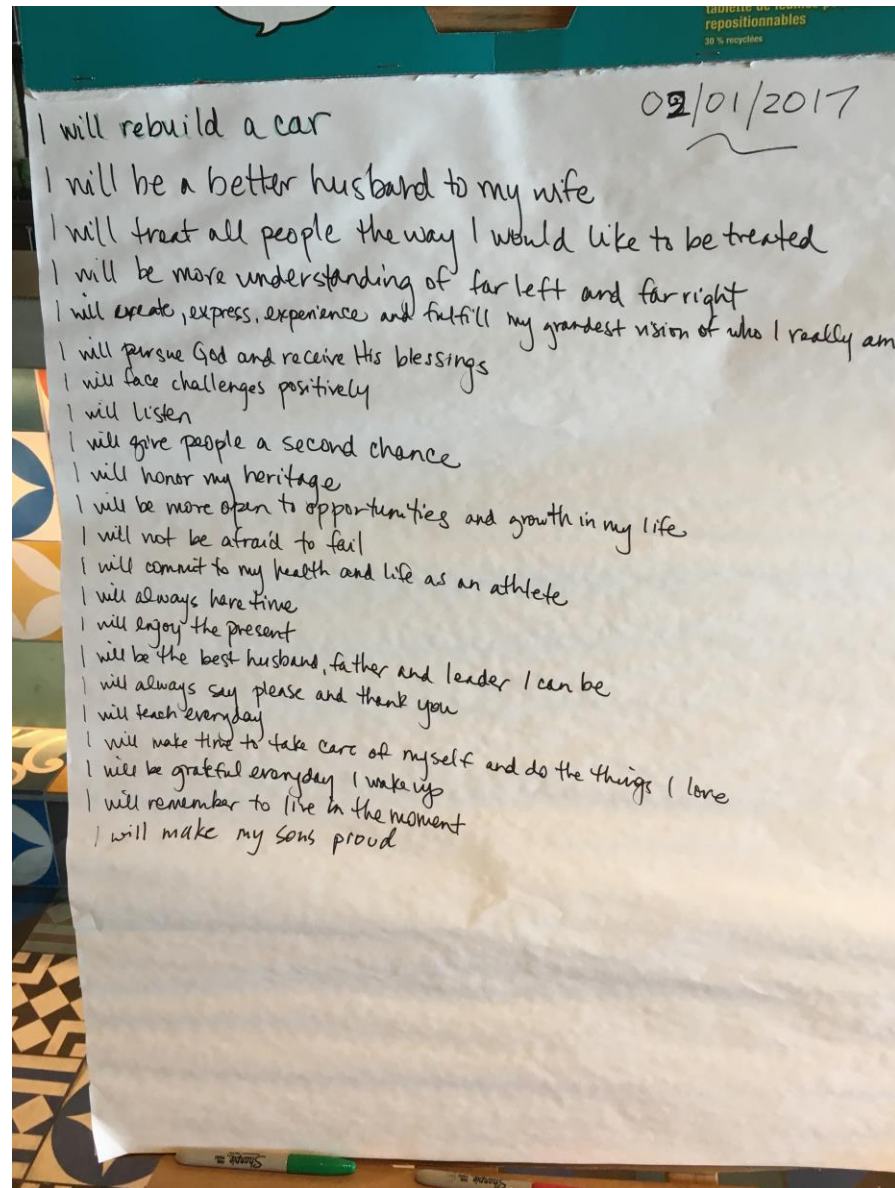 repositionnables
30 % recyclées
02/01/2017
I will rebuild a car
I will be a better husband to my wife
I will treat all people the way I would like to be treated
I will be more understanding of far left and far right
I will create, express, experience and fulfill my grandest vision of who I really am
I will pursue God and receive His blessings
I will face challenges positively
I will listen
I will give people a second chance
I will honor my heritage
I will be more open to opportunities and growth in my life
I will not be afraid to fail
I will commit to my health and life as an athlete
I will always have time
I will enjoy the present
I will be the best husband, father and leader I can be
I will always say please and thank you
I will teach everyday
I will make time to take care of myself and do the things I love
I will be grateful everyday I wake up
I will remember to live in the moment
I will make my sons proud
Sharpie
Sharpie